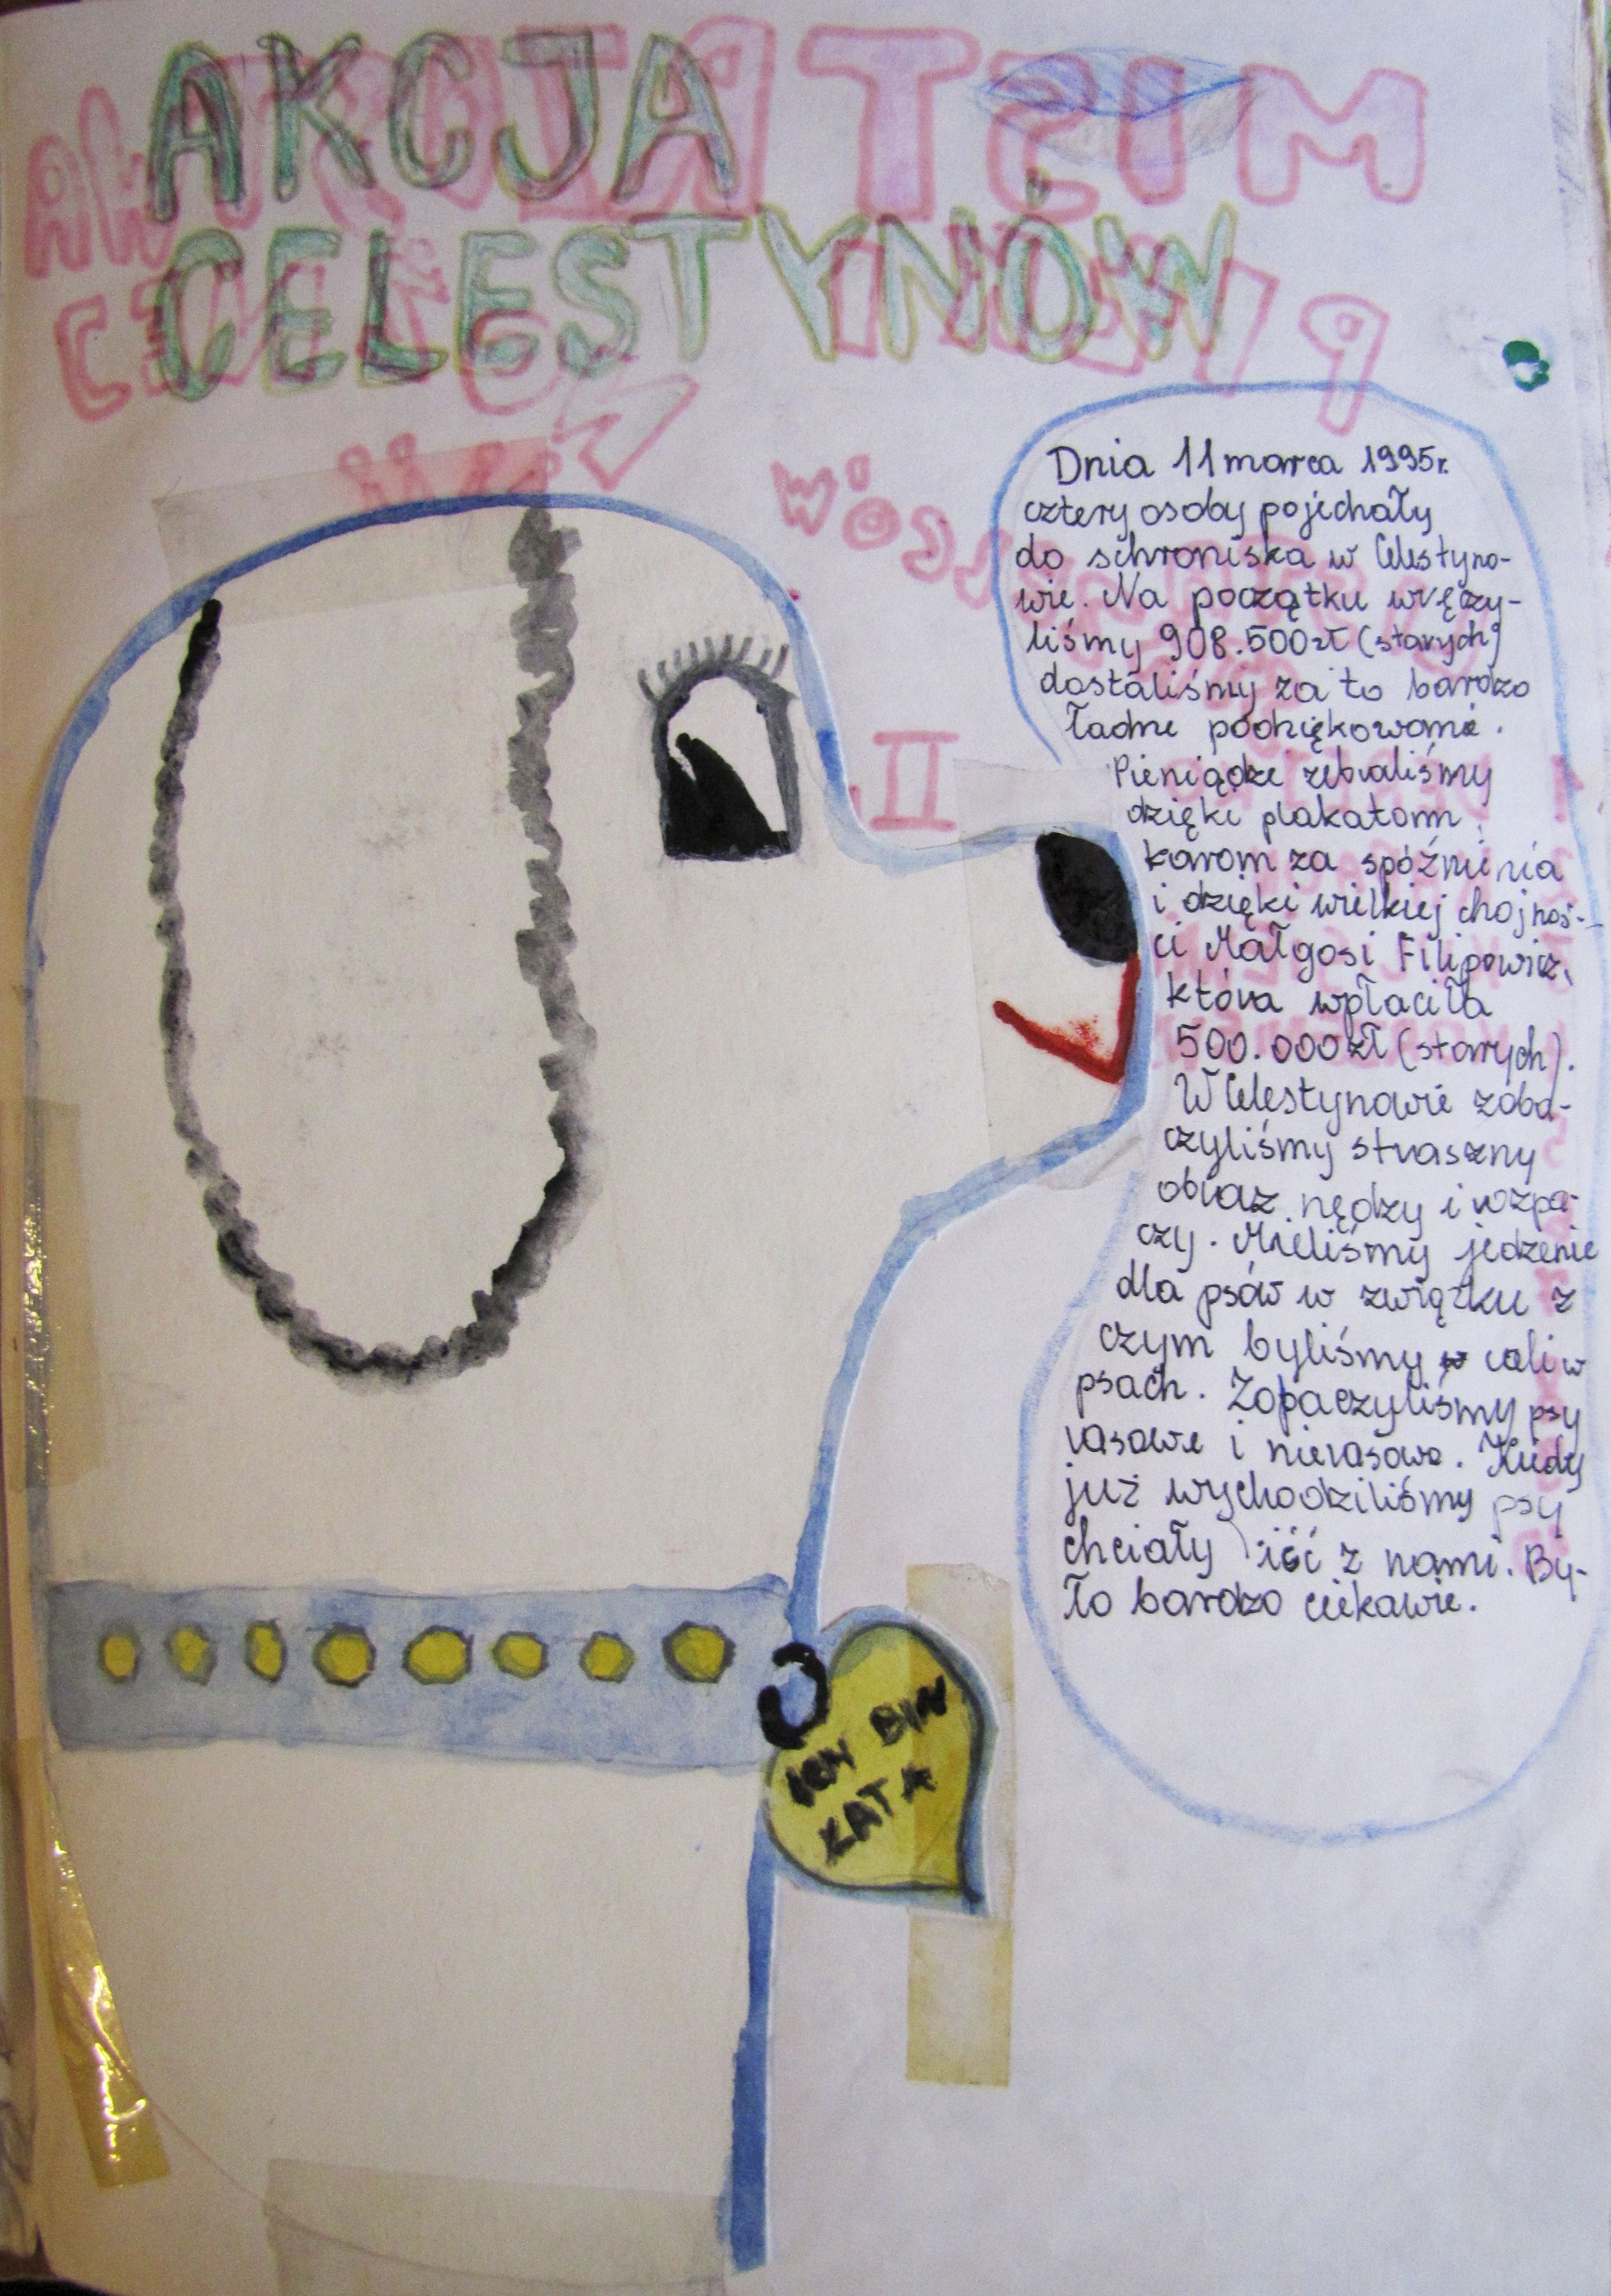 AKCJA
CELESTYNÓW
Dnia 11 marca 1995r.
cztery osoby pojechały
do schroniska w Celestyno-
wie. Na początku wręczy-
liśmy 908.500zł (starych)
dostaliśmy za to bardzo
ładne podziękowanie.
Pieniądze zebraliśmy
dzięki plakatom,
karom za spóźnienia
i dzięki wielkiej chojnoś-
ci Małgosi Filipowicz,
która wpłaciła
500.000zł (starych).
W Celestynowie zoba-
czyliśmy straszny
obraz nędzy i rozpa-
czy. Mieliśmy jedzenie
dla psów w związku z
czym byliśmy cali w
psach. Zobaczyliśmy psy
rasowe i nierasowe. Kiedy
już wychodziliśmy psy
chciały iść z nami. By-
ło bardzo ciekawie.
II
ICH BIN
KATA